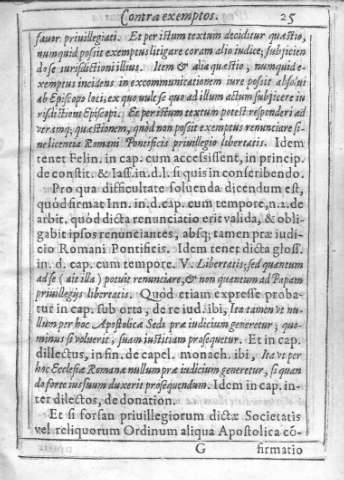 Contra exemptos. 25
fauor priuillegiati. Et per istum textum deciditur quæstio,
nunquid possit exemptus litigare coram alio iudice; subijcien
do se iurisdictioni illius. Item & alia quæstio, nunquid e-
xemptus incidens in excommunicationem iure possit absolui
ab Episcopo loci, ex quo vult se quo ad illum actum subijcere iu
risdictioni Episcopi. Et per istum textum potest responderi ad
veramq; quæstionem, quòd non possit exemptus renunciare si-
ne licentia Romani Pontificis priuillegio libertatis. Idem
tenet Felin. in cap. cum accessissent, in princip.
de constit. & Iass. in. d. l. si quis in conscribendo.
Pro qua difficultate soluenda dicendum est,
quòd firmat Inn. in. d. cap. cum tempore, n. 2. de
arbit. quòd dicta renunciatio erit valida, & obli-
gabit ipsos renunciantes, absq; tamen præiudi-
cio Romani Pontificis. Idem tenet dicta gloss.
in. d. cap. cum tempore. V. Libertatis; sed quantum
ad se (ait illa) potuit renunciare, & non quantum ad Papam
priuillegijs libertatis. Quòd etiam expresse proba-
tur in cap. sub orta, de re iud. ibi, Ita tamen vt nu
llum per hoc Apostolicæ Sedi præiudicium generetur; quo-
minus si voluerit, suam iustitiam prosequetur. Et in cap.
dillectus, in fin. de capel. monach. ibi, Ita vt per
hoc Ecclesiæ Romanæ nullum præiudicium generetur, si quan
do forte ius suum duxerit prosequendum. Idem in cap. in-
ter dilectos, de donation.
Et si forsan priuillegiorum dictæ Societatis
vel reliquorum Ordinum aliqua Apostolica cõ-
G firmatio